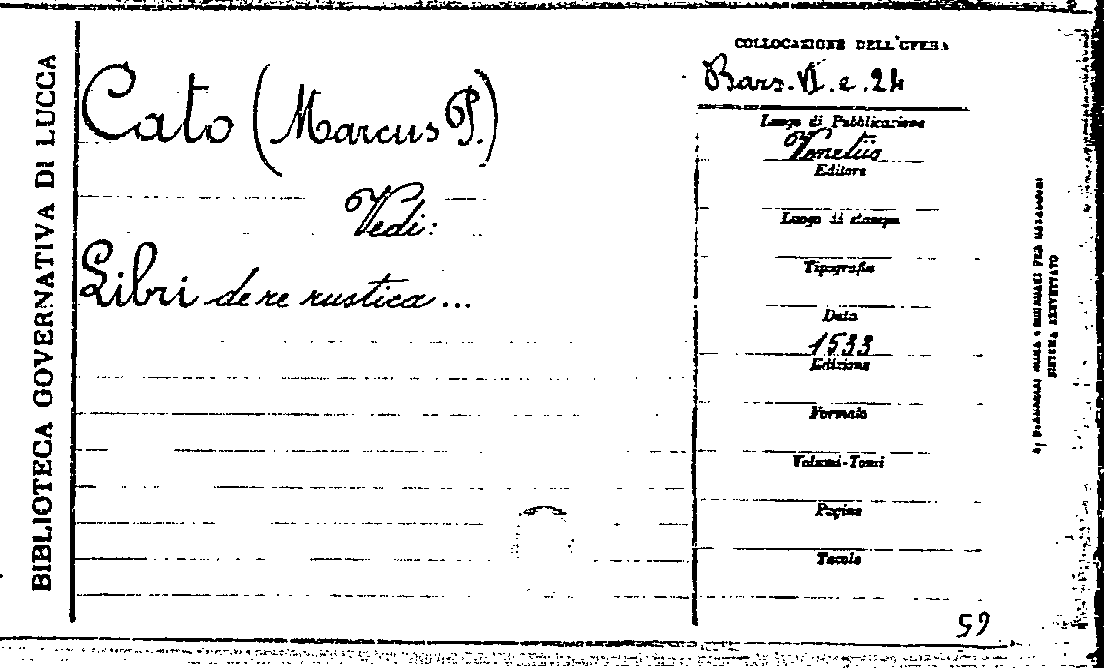 BIBLIOTECA GOVERNATIVA DI LUCCA
Cato (Marcus P.)
Vedi:
Libri de re rustica...
COLLOCAZIONE DELL'OPERA
Bars. VI. e. 24
Luogo di Pubblicazione
Venetiis
Editore
Luogo di stampa
Tipografia
Data
1533
Edizione
Formato
Volumi-Tomi
Pagine
Tavole
59